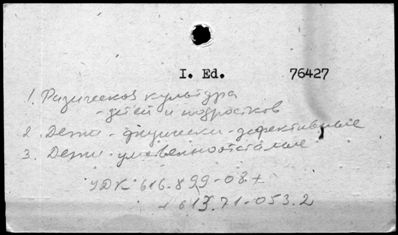 I. Ed. 76427
1. Физическая культура
- детей и подростков
2. Дети - физически - дефективные
3. Дети - умственноотсталые
УДК 616.899-08 +
+ 613.71-053.2